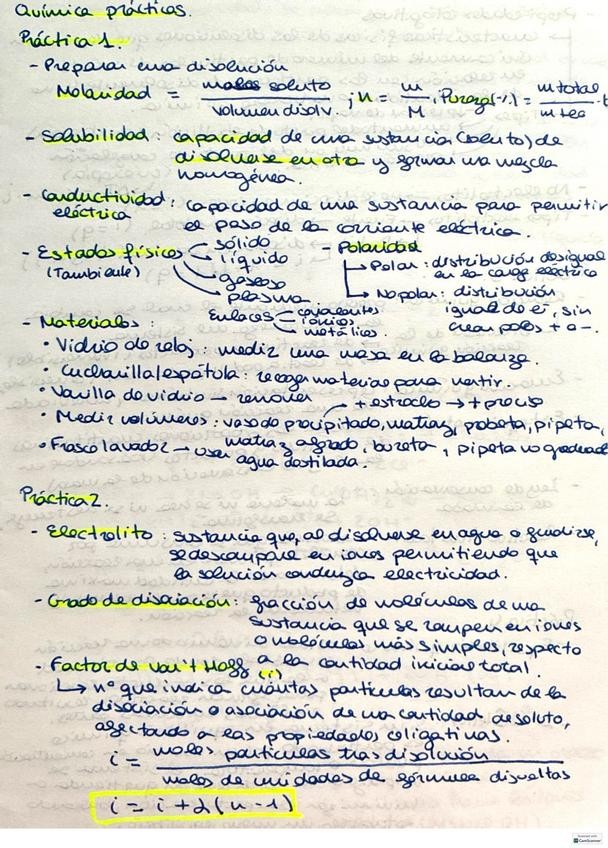 Química prácticas.
Práctica 1.
- Preparar una disolución
Molaridad = moles soluto / volumen disolv. ; n = m / M ; Pureza(%) = m total / m rec ·
- Solubilidad : capacidad de una sustancia (soluto) de
disolverse en otra y formar una mezcla
homogénea.
- Conductividad : capacidad de una sustancia para permitir
eléctrica
el paso de la corriente eléctrica.
- Estados físicos
(T ambiente)
sólido
líquido
gaseoso
plasma
- Polaridad
Polar : distribución desigual
en la carga eléctrica
No polar : distribución
igual de ei, sin
crear polos + o -.
Enlaces
covalentes
iónicos
metálicos
- Materiales :
• Vidrio de reloj : medir una masa en la balanza.
• Cucharilla/espátula : recoger materias para verter.
• Varilla de vidrio → remover
+ estrecho → + preciso
• Medir volúmenes : vaso de precipitado, matraz, probeta, pipeta,
matraz aforado, bureta, pipeta no graduada
• Frasco lavador → usar agua destilada.
Práctica 2.
- Electrolito : sustancia que, al disolverse en agua o fundirse,
se descompone en iones permitiendo que
la solución conduzca electricidad.
- Grado de disociación : fracción de moléculas de una
sustancia que se rompen en iones
o moléculas más simples, respecto
a la cantidad inicial total.
- Factor de van't Hoff (i)
↳ nº que indica cuántas partículas resultan de la
disociación o asociación de una cantidad de soluto,
afectando a las propiedades coligativas.
i = moles partículas tras disolución / moles de unidades de fórmula disueltas
i = i + α(n - 1)
Scanned with
CamScanner